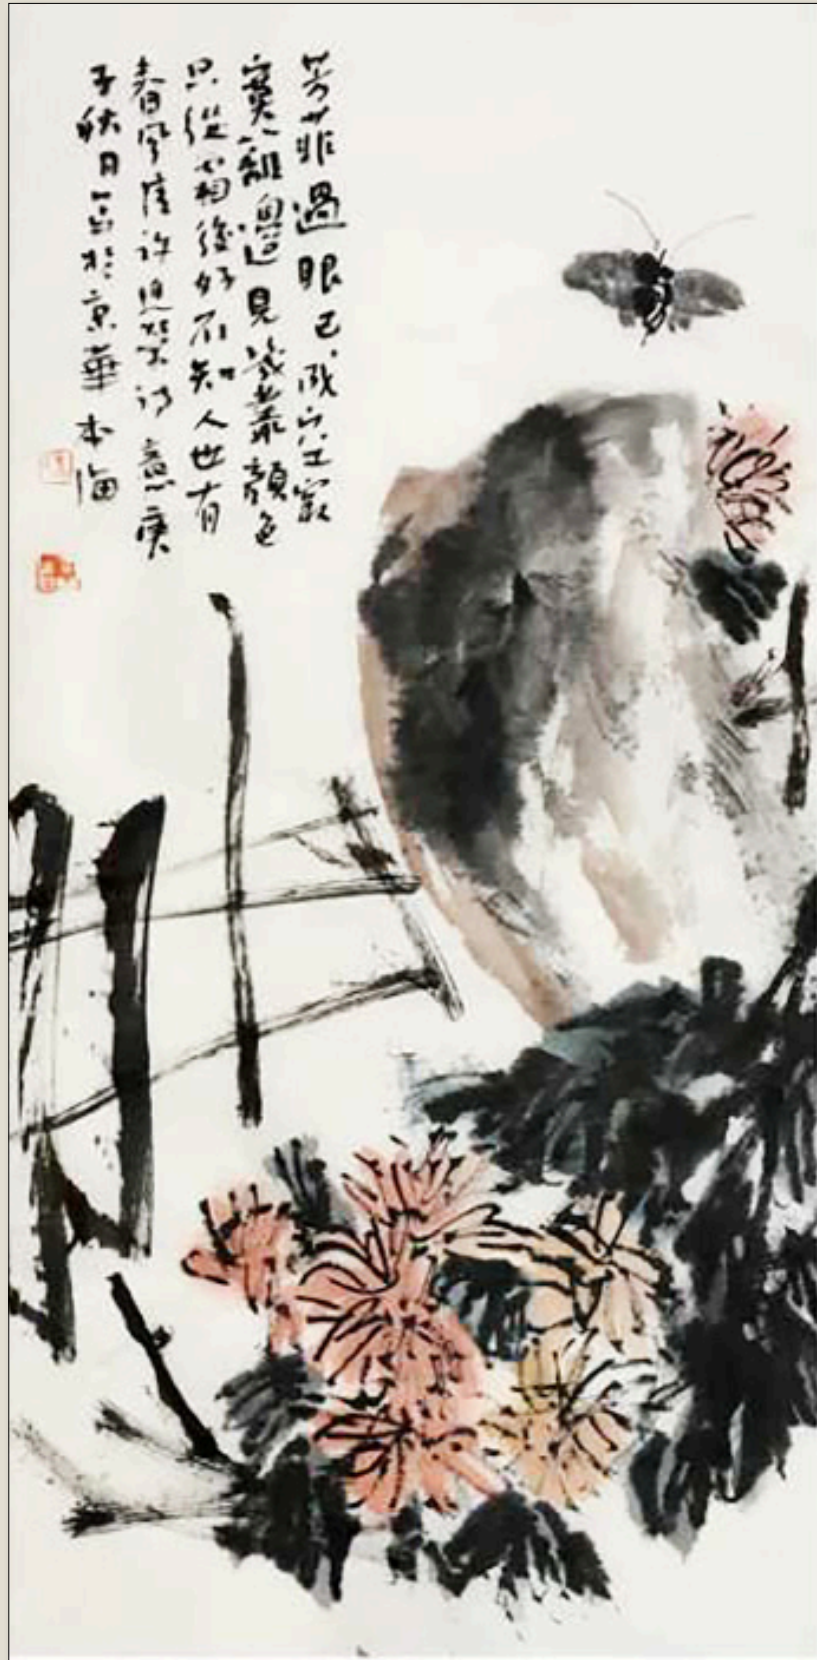 芳菲過眼已成空寂
寞籬邊見幾叢顏色
只從霜後好不知人世有
春風清許廷榮诗意庚
子秋日写於京華本海